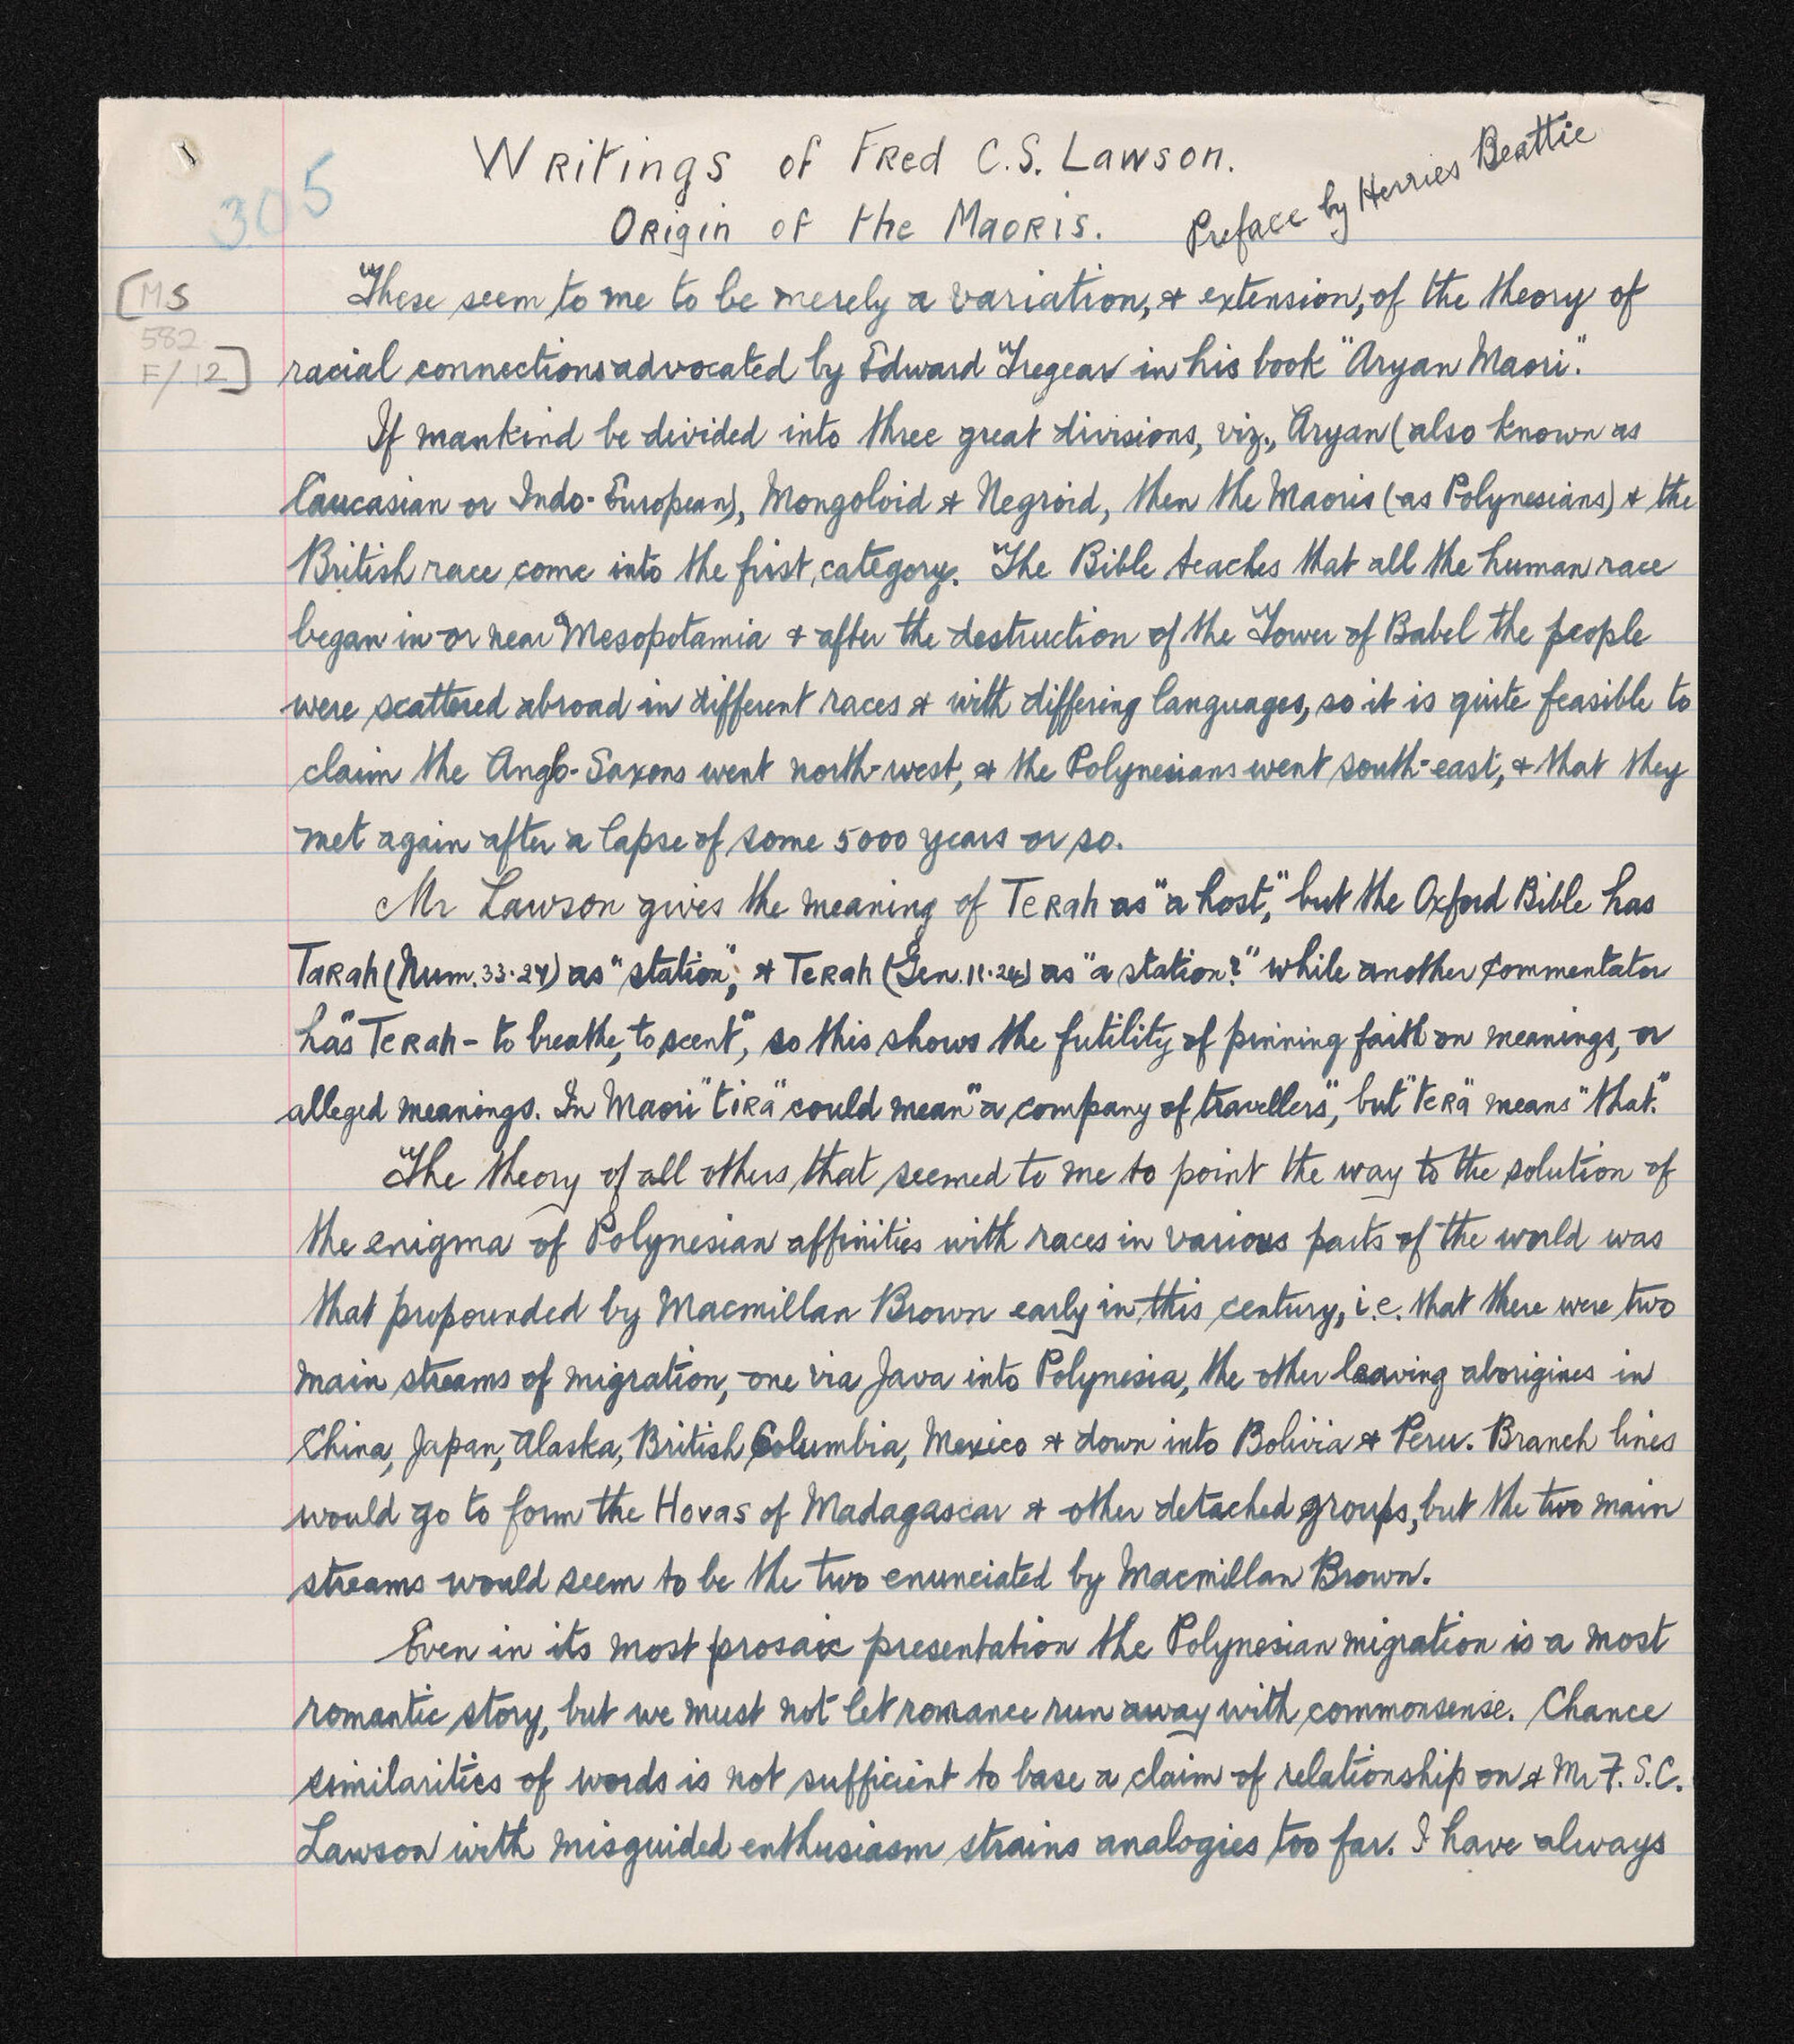 Writings of Fred C.S. Lawson.
Origin of the Maoris.
Preface by Herries Beattie
305
[MS
582
F/12]
These seem to me to be merely a variation, & extension, of the theory of
racial connections advocated by Edward Tregear in his book "Aryan Maori."
If mankind be divided into three great divisions, viz., Aryan (also known as
Caucasian or Indo-European), Mongoloid & Negroid, then the Maoris (as Polynesians) & the
British race come into the first category. The Bible teaches that all the human race
began in or near Mesopotamia & after the destruction of the Tower of Babel the people
were scattered abroad in different races & with differing languages, so it is quite feasible to
claim the Anglo-Saxons went north-west, & the Polynesians went south-east, & that they
met again after a lapse of some 5000 years or so.
Mr Lawson gives the meaning of Terah as "a host," but the Oxford Bible has
Tarah (Num. 33.27) as "station", & Terah (Gen. 11.24) as "a station?" while another commentator
has "Terah - to breathe, to scent", so this shows the futility of pinning faith on meanings, or
alleged meanings. In Maori "tira" could mean "a company of travellers", but "tera" means "that."
The theory of all others, that seemed to me to point the way to the solution of
the enigma of Polynesian affinities with races in various parts of the world was
that propounded by Macmillan Brown early in this century, i.e. that there were two
main streams of migration, one via Java into Polynesia, the other leaving aborigines in
China, Japan, Alaska, British Columbia, Mexico & down into Bolivia & Peru. Branch lines
would go to form the Hovas of Madagascar & other detached groups, but the two main
streams would seem to be the two enunciated by Macmillan Brown.
Even in its most prosaic presentation the Polynesian migration is a most
romantic story, but we must not let romance run away with commonsense. Chance
similarities of words is not sufficient to base a claim of relationship on & Mr F. S.C.
Lawson with misguided enthusiasm strains analogies too far. I have always